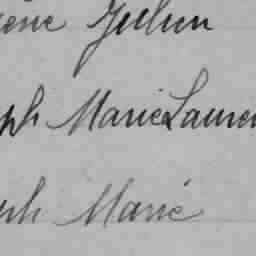 ène Julien
ph Marie Lauren
ph Marie